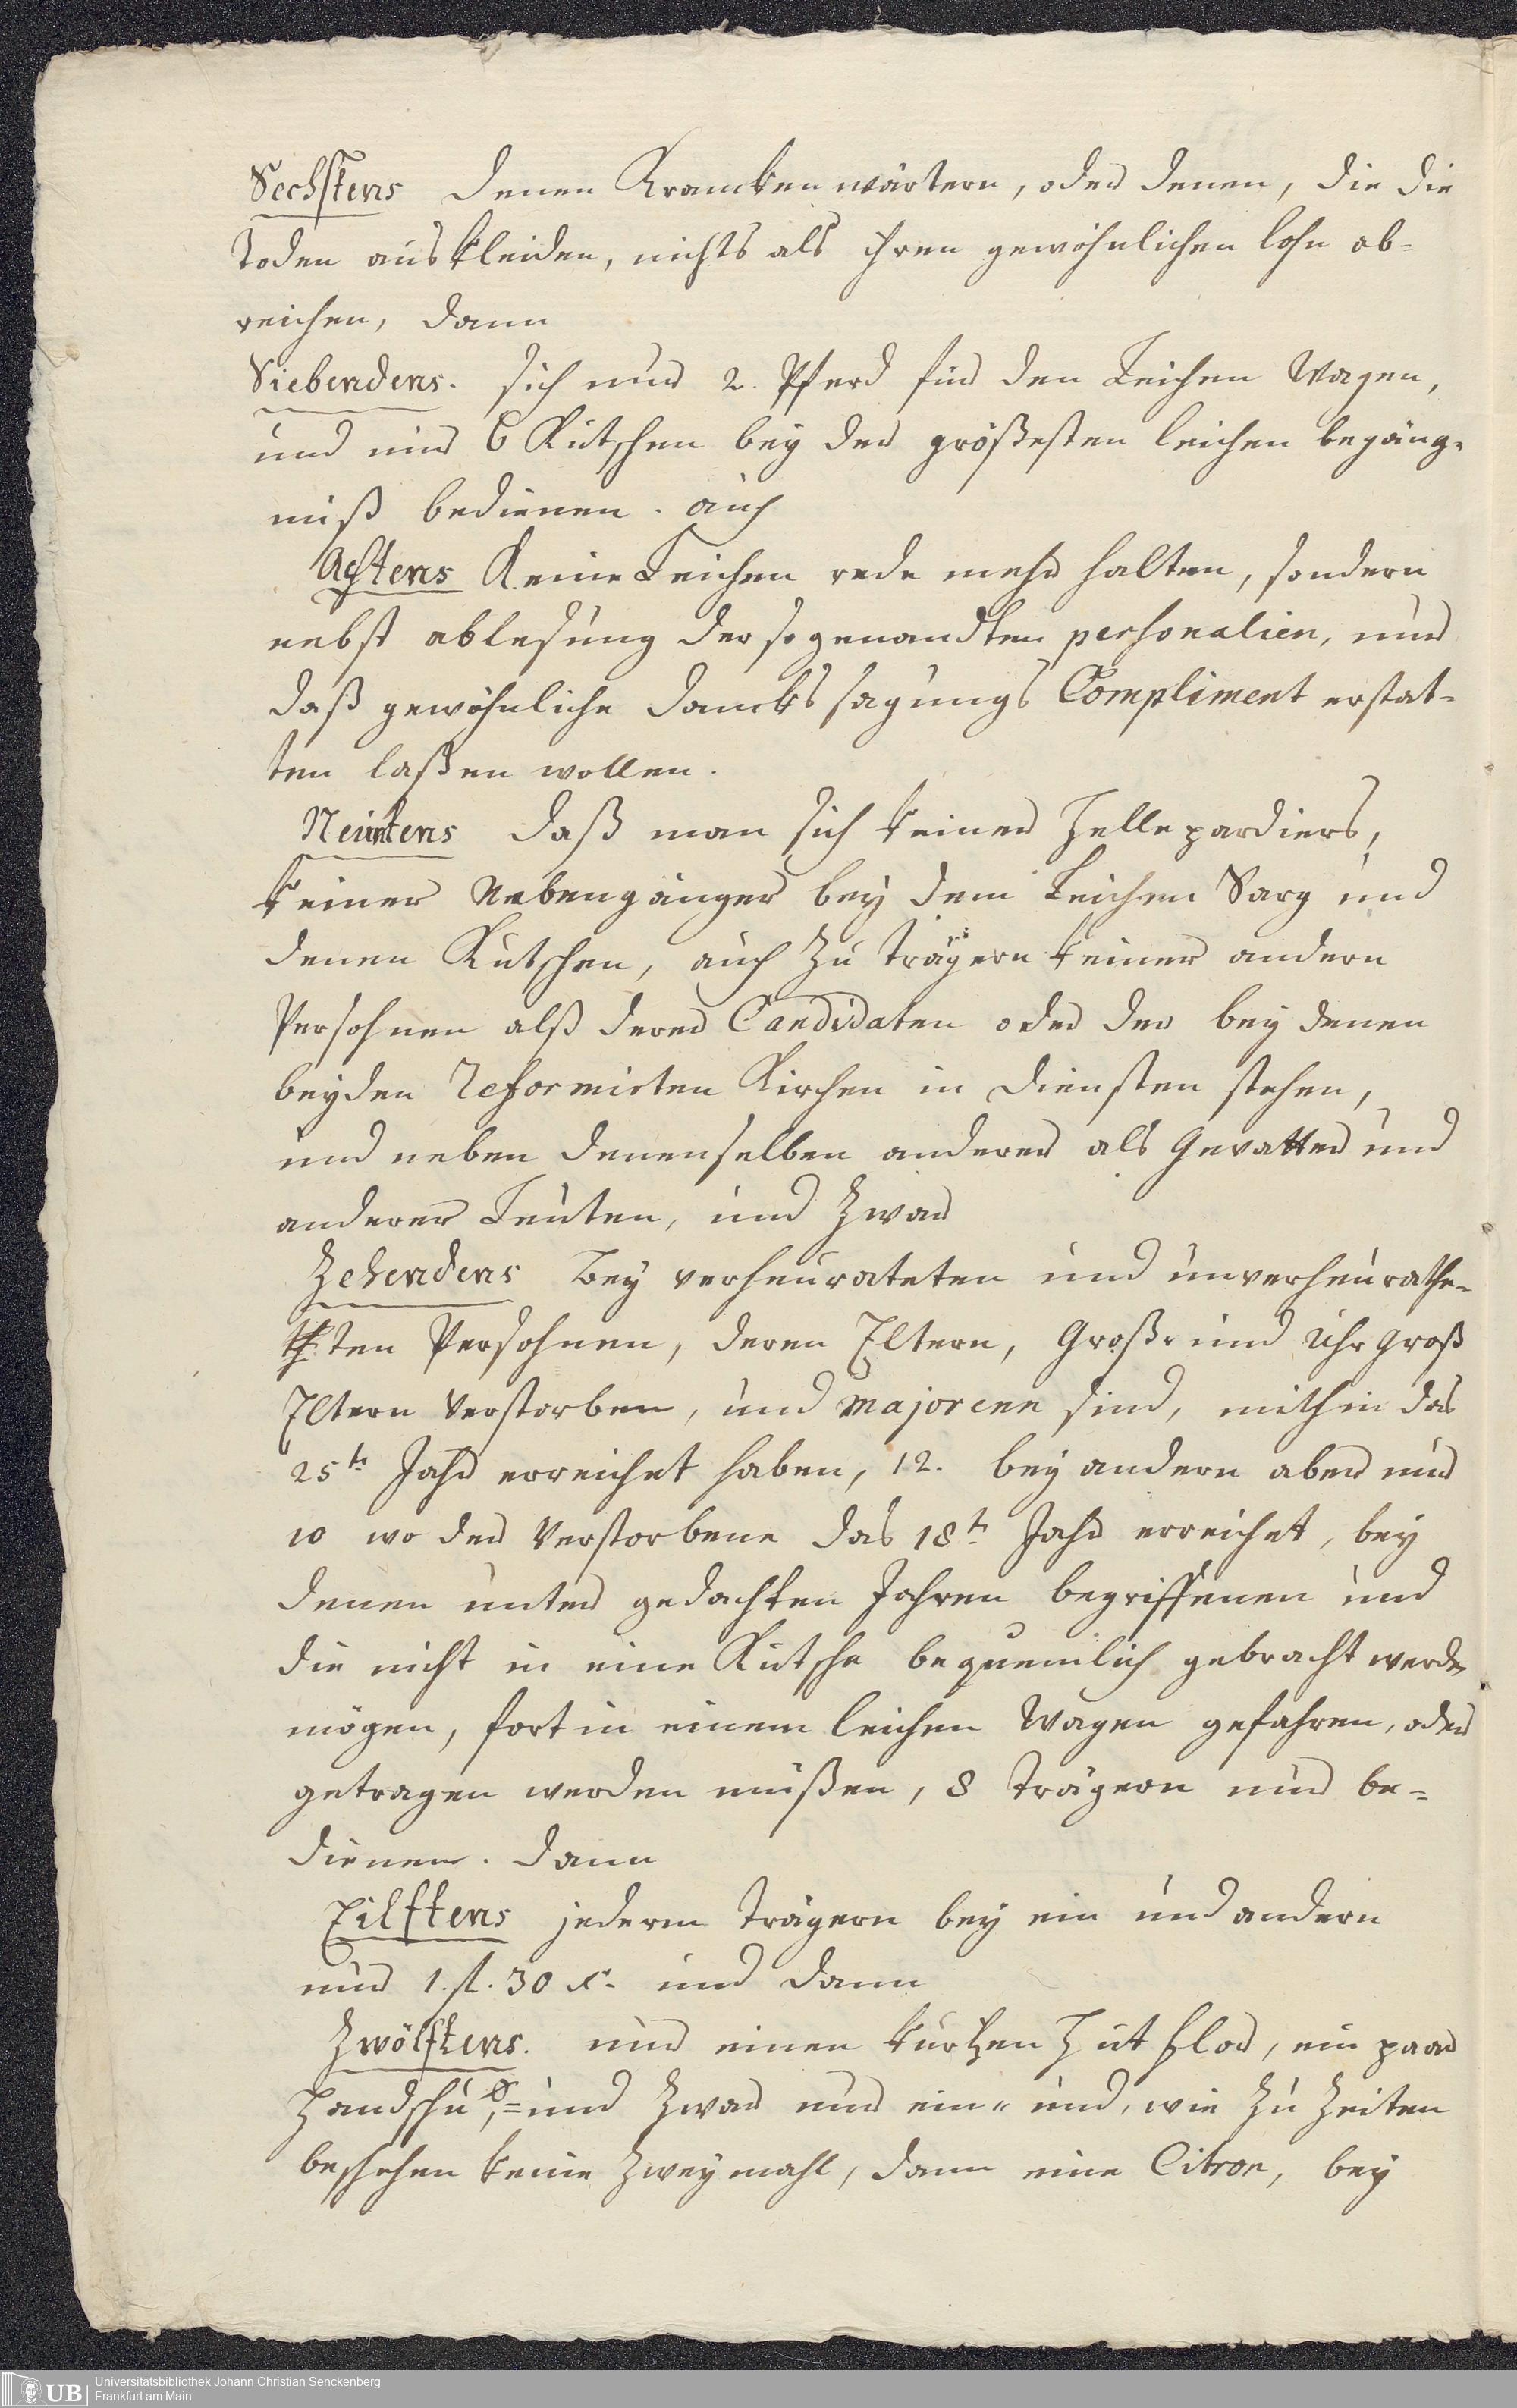 Sechstens denen Krancken wärtern, oder denen, die die
Toden auskleiden, nichts als ihren gewöhnlichen lohn ab-
reichen, dann
Siebendens. sich nur 2. Pferd für den Leichen Wagen,
und nur 6 Kutschen bey der größesten leichen begäng-
niß bedienen. auch
Achtens Keine Leichen rede mehr halten, sondern
nebst ablesung der sogenandten personalien, nur
daß gewöhnliche dancksagungs Compliment erstat-
ten laßen wollen.
Neuntens daß man sich keiner Hellepardiers,
keiner Nebengänger bey dem Leichen Sarg und
denen Kutschen, auch zu Trägern keiner andern
Persohnen alß derer Candidaten oder der bey denen
beyden Reformirten Kirchen in diensten stehen,
und neben denenselben anderer als Gevatter und
anderer Leuten, und zwar
Zehendens Bey verheurateten und unverheurathe-
ten Persohnen, deren Eltern, Groß- und Uhr Groß
Eltern verstorben, und majorenn sind, mithin das
25t. Jahr erreichet haben, 12. bey andern aber nur
10 wo der Verstorbene das 18t. Jahr erreichet, bey
denen unter gedachten Jahren begriffenen und
die nicht in eine Kutsche bequemlich gebracht werden
mögen, fort in einem leichen Wagen gefahren, oder
getragen werden müßen, 8 Trägern nur be-
dienen. dann
Eilftens jedem Trägern bey ein und andern
nur 1. fl. 30 x. und dann
Zwölftens. nur einen kurtzen Hut flor, ein paar
Handschu, = und zwar nur ein- und, wie zu Zeiten
beschehen keine zweymahl, dann eine Citron, bey
Universitätsbibliothek Johann Christian Senckenberg
UB Frankfurt am Main